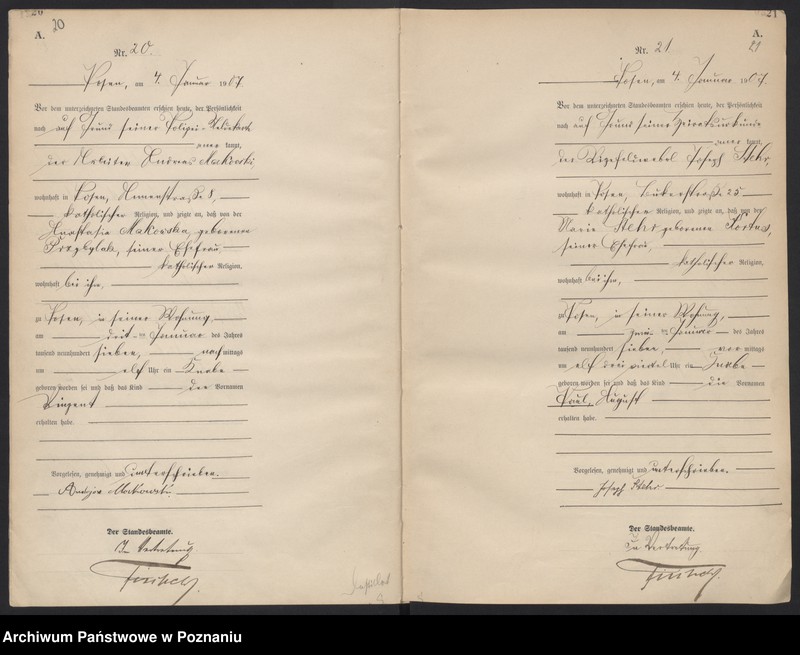 20
20
A.
Nr. 20.
Posen, am 4. Januar 1907.
Vor dem unterzeichneten Standesbeamten erschien heute, der Persönlichkeit
nach auf Grund seiner Polizei-
kannt,
der Arbeiter Andreas Makowski,
wohnhaft in Posen, 8,
katholischer Religion, und zeigte an, daß von der
Anastasia Makowska, geborenen
Przybylak, seiner Ehefrau,
katholischer Religion,
wohnhaft bei ihm,
zu Posen, in seiner Wohnung
am drit-ten Januar des Jahres
tausend neunhundert sieben, nachmittags
um elf Uhr ein Knabe
geboren worden sei und daß das Kind die Vornamen
Vinzent
erhalten habe.
Vorgelesen, genehmigt und unterschrieben.
Makowski
Der Standesbeamte.
In Vertretung
21
A.
21
Nr. 21
Posen, am 4. Januar 1907.
Vor dem unterzeichneten Standesbeamten erschien heute, der Persönlichkeit
nach auf Grund seiner
kannt,
der Vizefeldwebel Joseph Stehr,
wohnhaft in Posen, 25
katholischer Religion, und zeigte an, daß von der
Marie Stehr geborenen
seiner Ehefrau,
katholischer Religion,
wohnhaft bei ihm,
zu Posen, in seiner Wohnung,
am zwei-ten Januar des Jahres
tausend neunhundert sieben, vormittags
um elf drei viertel Uhr ein Knabe
geboren worden sei und daß das Kind die Vornamen
Paul, August
erhalten habe.
Vorgelesen, genehmigt und unterschrieben.
Joseph Stehr
Der Standesbeamte.
In Vertretung.
Archiwum Państwowe w Poznaniu